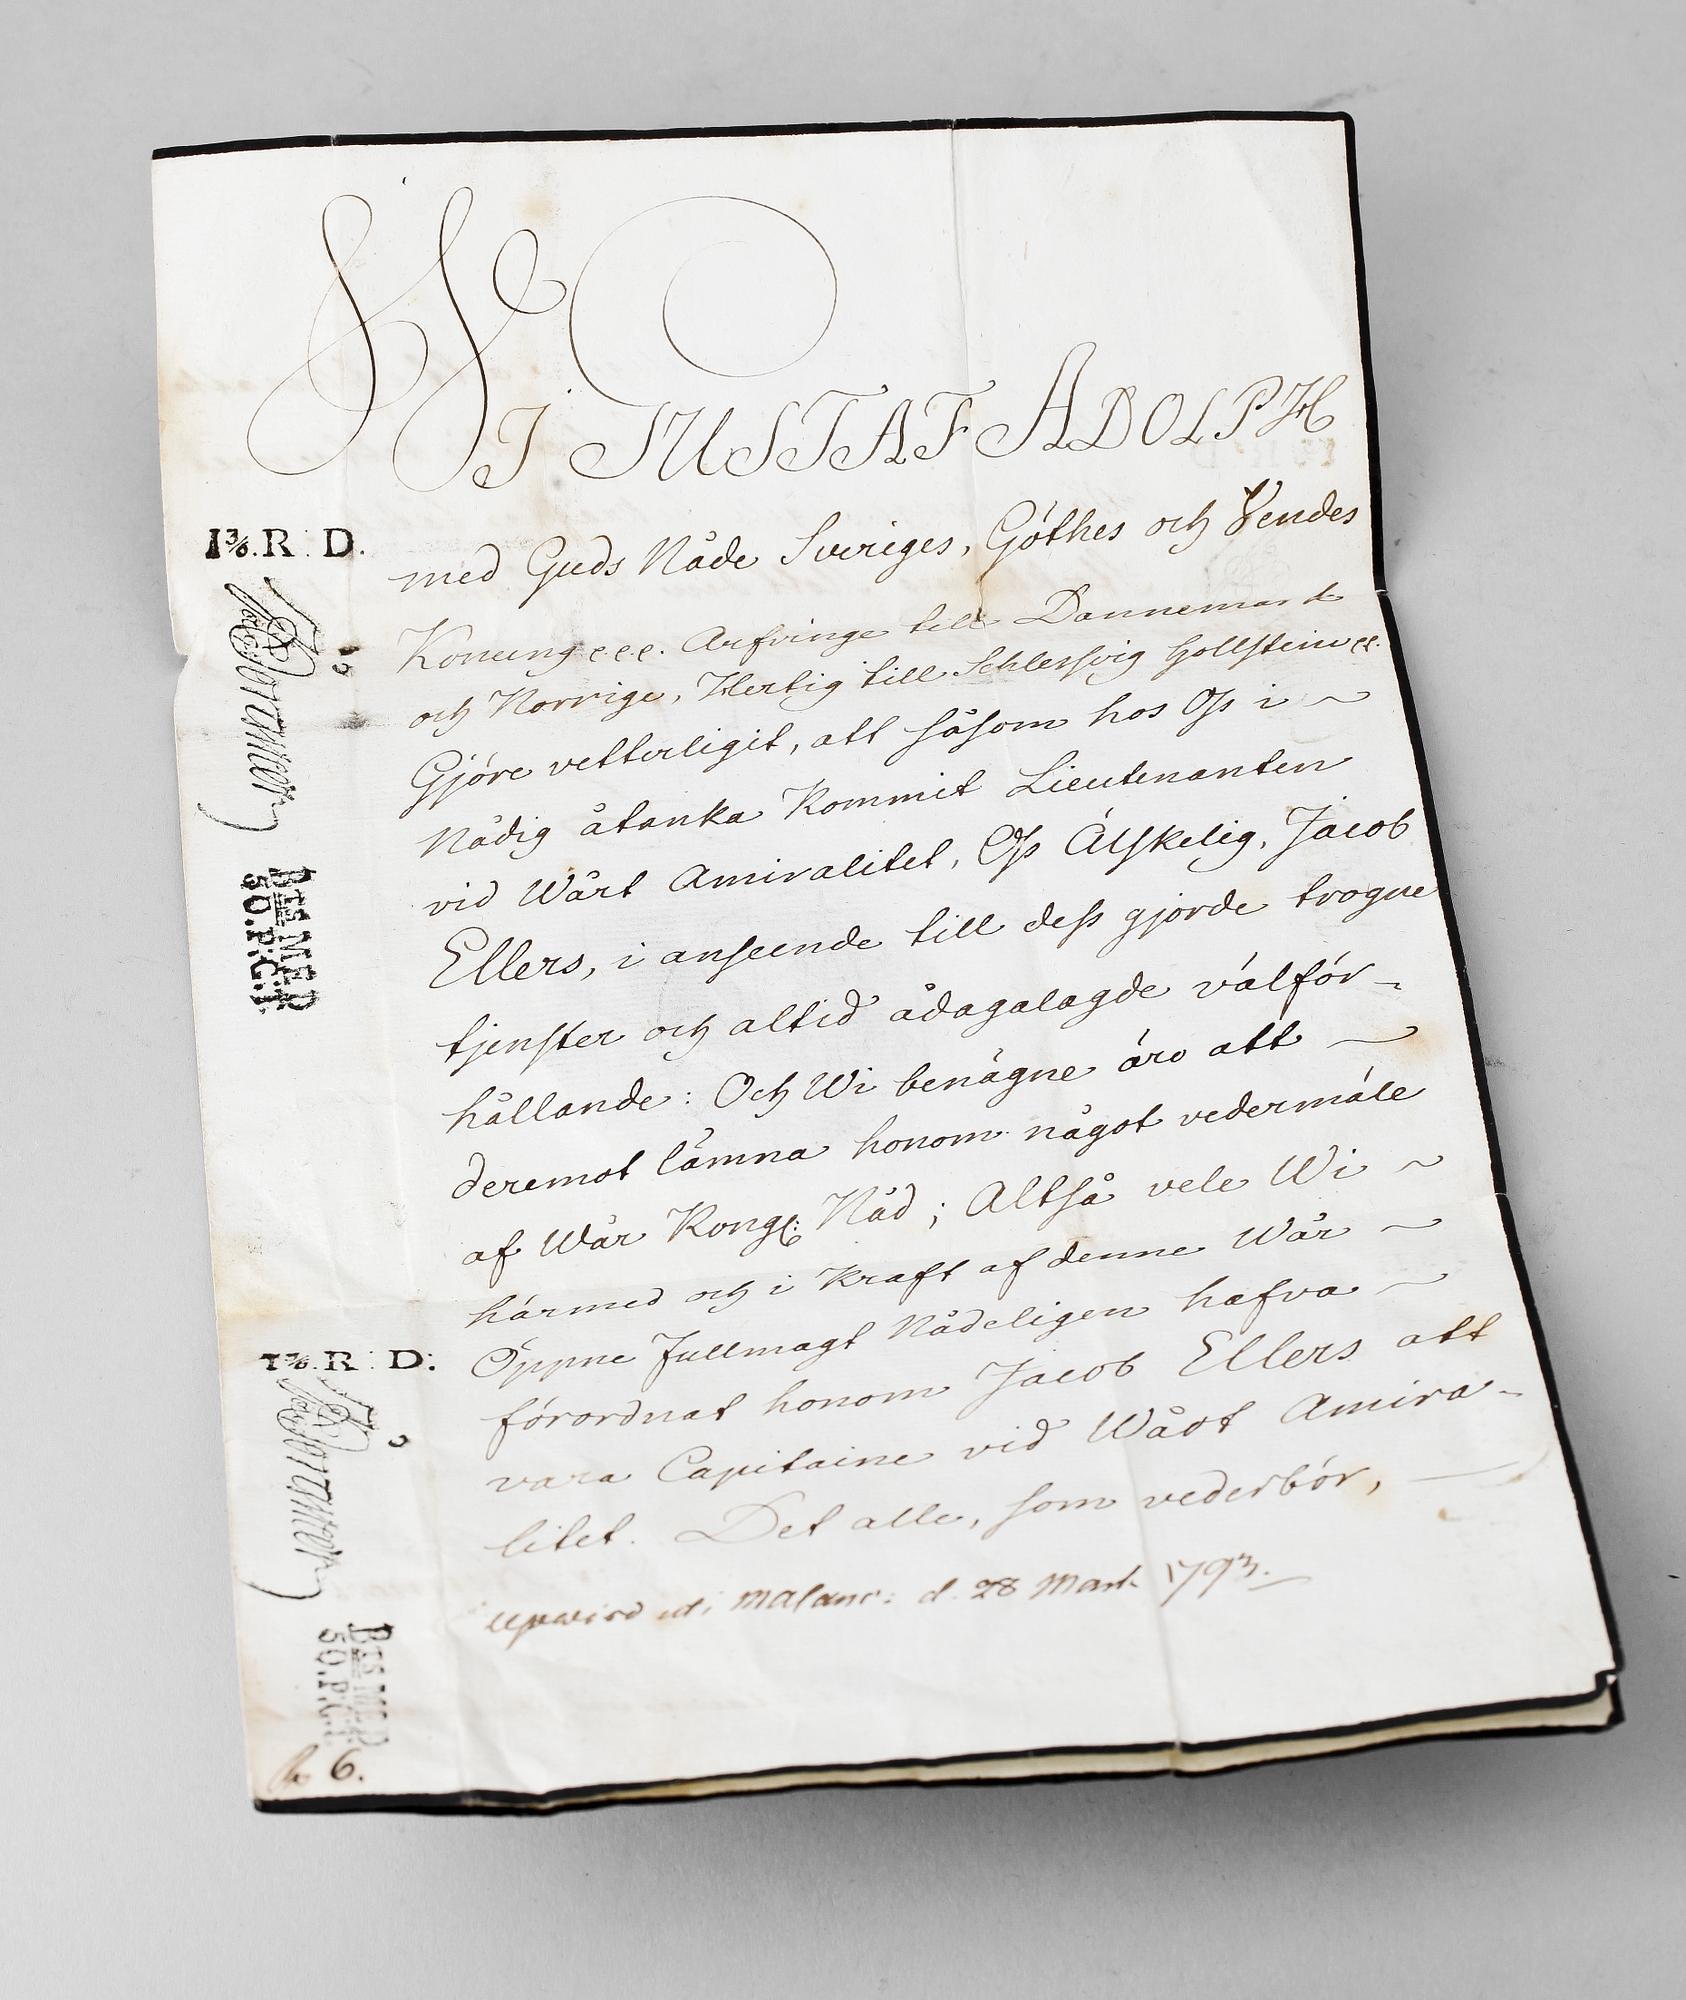 WI GUSTAF ADOLPH
med Guds Nåde Sveriges, Göthes och Vendes
Konung e.e.e. Arfvinge till Dannemark
och Norrige, Hertig till Schlessvig Hollstein e.e.
Gjöre vetterligit, att såsom hos Oss i ~
Nådig åtanka kommit Lieutenanten
vid Wårt Amiralitet, Oss Älskelig, Jacob
Ellers, i anseende till dess gjorde trogne
tjenster och altid ådagalagde välför-
hållande: Och Wi benägne äro att ~
deremot lämna honom något vedermäle
af Wår Kongl: Nåd; Altså vele Wi ~
härmed och i kraft af denne Wår ~
Öppne Fullmagt Nådeligen hafva ~
förordnat honom Jacob Ellers att
vara Capitaine vid Wårt Amira-
litet. Det alle, som vederbör, —
d. 28 Mart. 1793.
1 3/6. R: D.
BTS MED
50.P:C:T.
1 3/6. R: D:
BTS MED
50.P:C:T.
6.